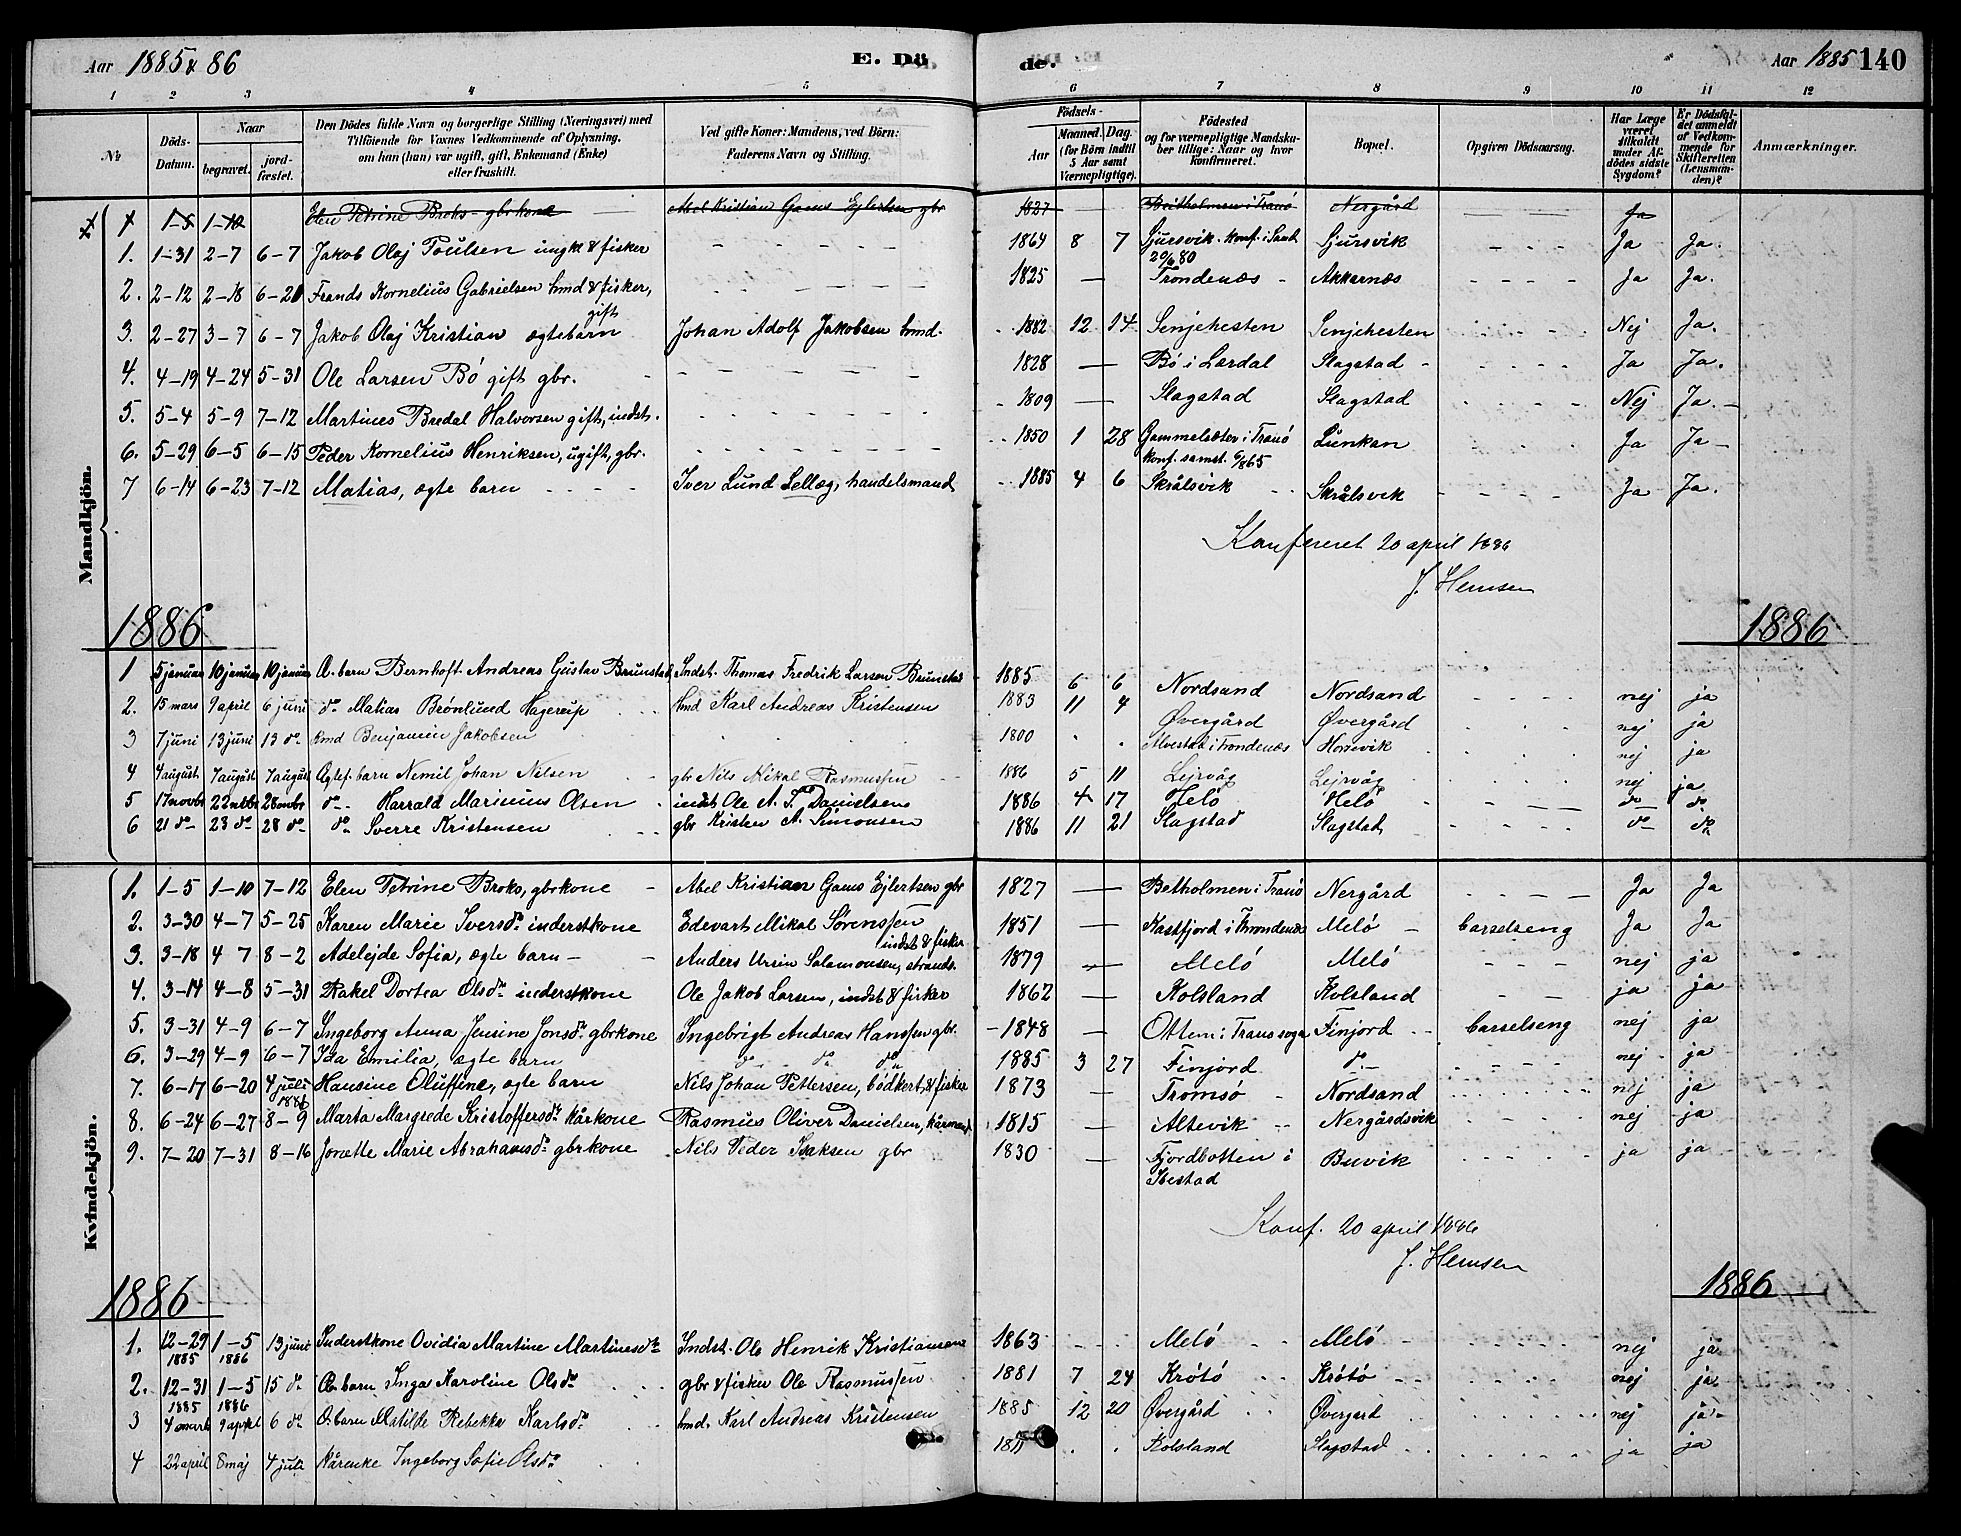 Aar 1885 & 86 E. Dö de. Aar 1885 140
1 2 3 4 5 6 7 8 9 10 11 12
№ Döds-Datum. Naar begravet. jordfæstet. Den Dödes fulde Navn og borgerlige Stilling (Næringsvei) med Tilföiende for Voxnes Vedkommende af Oplysning, om han (hun) var ugift, gift, Enkemand (Enke) eller fraskilt. Ved gifte Koner: Mandens, ved Börn: Faderens Navn og Stilling. Födsels- Aar Maaned. Dag. (for Börn indtil 5 Aar samt Værnepligtige). Födested og for værnepligtige Mandskaber tillige: Naar og hvor konfirmeret. Bopæl. Opgiven Dödsaarsag. Har Læge været tilkaldt under Afdödes sidste Sygdom? Er Dödsfaldet anmeldt af Vedkommende for Skifteretten (Lensmanden)? Anmærkninger.
Mandkjön.
1 1-5 1-10 Elen Petrine Broks - gbrkone Abel Kristian Gams Ejlertsen gbr 1827 — Beitholmen i Tranö Nergård Ja
1. 1-31 2-7 6-7 Jakob Olaj Poulsen ungk & fisker 1864 8 7 Sjursvik. konf. i Sand 20/6 80 Sjursvik Ja Ja.
2. 2-12 2-18 6-21 Frands Kornelius Gabrielsen hmd & fisker, gift 1825 — Trondenæs Akkarnæs Ja Ja.
3. 2-27 3-7 6-7 Jakob Olaj Kristian ægtebarn Johan Adolf Jakobsen hmd. 1882 12 14 Senjehesten Senjehesten Nej Ja.
4. 4-19 4-24 5-31 Ole Larsen Bö gift gbr. 1828 — Bö i Lærdal Slagstad Ja Ja.
5. 5-4 5-9 7-12 Martines Bredal Halvorsen gift, indst. 1809 — Slagstad Slagstad Nej Ja.
6. 5-29 6-5 6-15 Peder Kornelius Henriksen, ugift, gbr. 1850 1 28 Gammelsæter i Tranö konf. samst. 6/8 65 Lunkan Ja Ja
7 6-14 6-23 7-12 Matias, ægte barn Iver Lund Lellæg, handelsmand 1885 4 6 Skrålsvik Skrålsvik Ja Ja.
Konfereret 20 april 1886
J. Hemsen
1886 1886
1 5 januar 10 januar 10 januar Æ. barn Bernhoft Andreas Gustav Brunstad Indst. Thomas Fredrik Larsen Brunstad 1885 6 6 Nordsand Nordsand nej ja
2. 15 mars 9 april 6 juni do Matias Brönlund Hagerup hmd Karl Andreas Kristensen 1883 11 4 Övergård Övergård nej ja
3 7 juni 13 juni 13 do kmd Benjamin Jakobsen 1800 Alvestad i Trondenæs nej ja
4 4 august 7 august 7 august Ægtef. barn Nemil Johan Nilsen gbr Nils Mikal Rasmussen 1886 5 11 Lejrvåg Lejrvåg nej ja
5 17 novbr 22 novbr 28 novbr do Harrald Marinius Olsen indst Ole A. T. Danielsen 1886 4 17 Melö Melö do do
6 21 do 23 do 28 do do Sverre Kristensen gbr Kristen A. Simonsen 1886 11 21 Slagstad Slagstad do do
Kvindekjön.
1. 1-5 1-10 7-12 Elen Petrine Broks, gbrkone Abel Kristian Gams Ejlertsen gbr 1827 — Betholmen i Tranö Nergård Ja Ja
2. 3-30 4-7 5-25 Karen Marie Iversdr. inderstkone Edevart Mikal Sörenssen indst & fisker 1851 — Kastfjord i Throndenæs Melö barselseng Ja Ja
3. 3-18 4 7 8-2 Adelejde Sofia, ægte barn Anders Ursin Salamonsen, strands. 1879 — Melö Melö nej ja
4. 3-14 4-8 5-31 Rakel Dortea Olsdr. inderstkone Ole Jakob Larsen, indst & fisker 1862 — Kolsland Kolsland ja ja
5. 3-31 4-9 6-7 Ingeborg Anna Jensine Jonsdr. gbrkone Ingebrigt Andreas Hanssen gbr. 1848 — Ottem i Tranö sogn Finjord barselseng nej ja
6. 3-29 4-9 6-7 Ida Emilia, ægte barn do do do 1885 3 27 Finjord do nej ja
7. 6-17 6-20 4 juli 1886 Hansine Oluffine, ægte barn Nils Johan Pettersen, bödkert. & fisker 1873 — Tromsö Nordsand nej ja
8. 6-24 6-27 8-9 Marta Margrede Kristoffersdr. kårkone Rasmus Oliver Danielsen, kårmand 1815 — Altevik Nergårdsvik nej ja
9. 7-20 7-31 8-16 Jonette Marie Abrahamsdr. gbrkone Nils Peder Isaksen gbr 1830 — Fjordbotten i Ibestad Buvik ja ja
Konf. 20 april 1886
J. Hemsen
1886 1886
1. 12-29 1885 1-5 1886 13 juni Inderstkone Ovidia Martine Martinesdr. Indst. Ole Henrik Kristiansen 1863 Melö Melö nej ja
2. 12-31 1885 1-5 1886 15 do Æ. barn Inga Karoline Olsdr. gbr & fisker Ole Rasmussen 1881 7 24 Krötö Krötö nej ja
3 4 mars 9 april 6 do Æ. barn Matilde Rebekka Karlsdr. hmd. Karl Andreas Kristensen 1885 12 20 Övergård Övergård nej ja
4 22 april 8 maj 4 juli Ingeborg Sofie Olsdr. Kolsland Slagstad ja ja